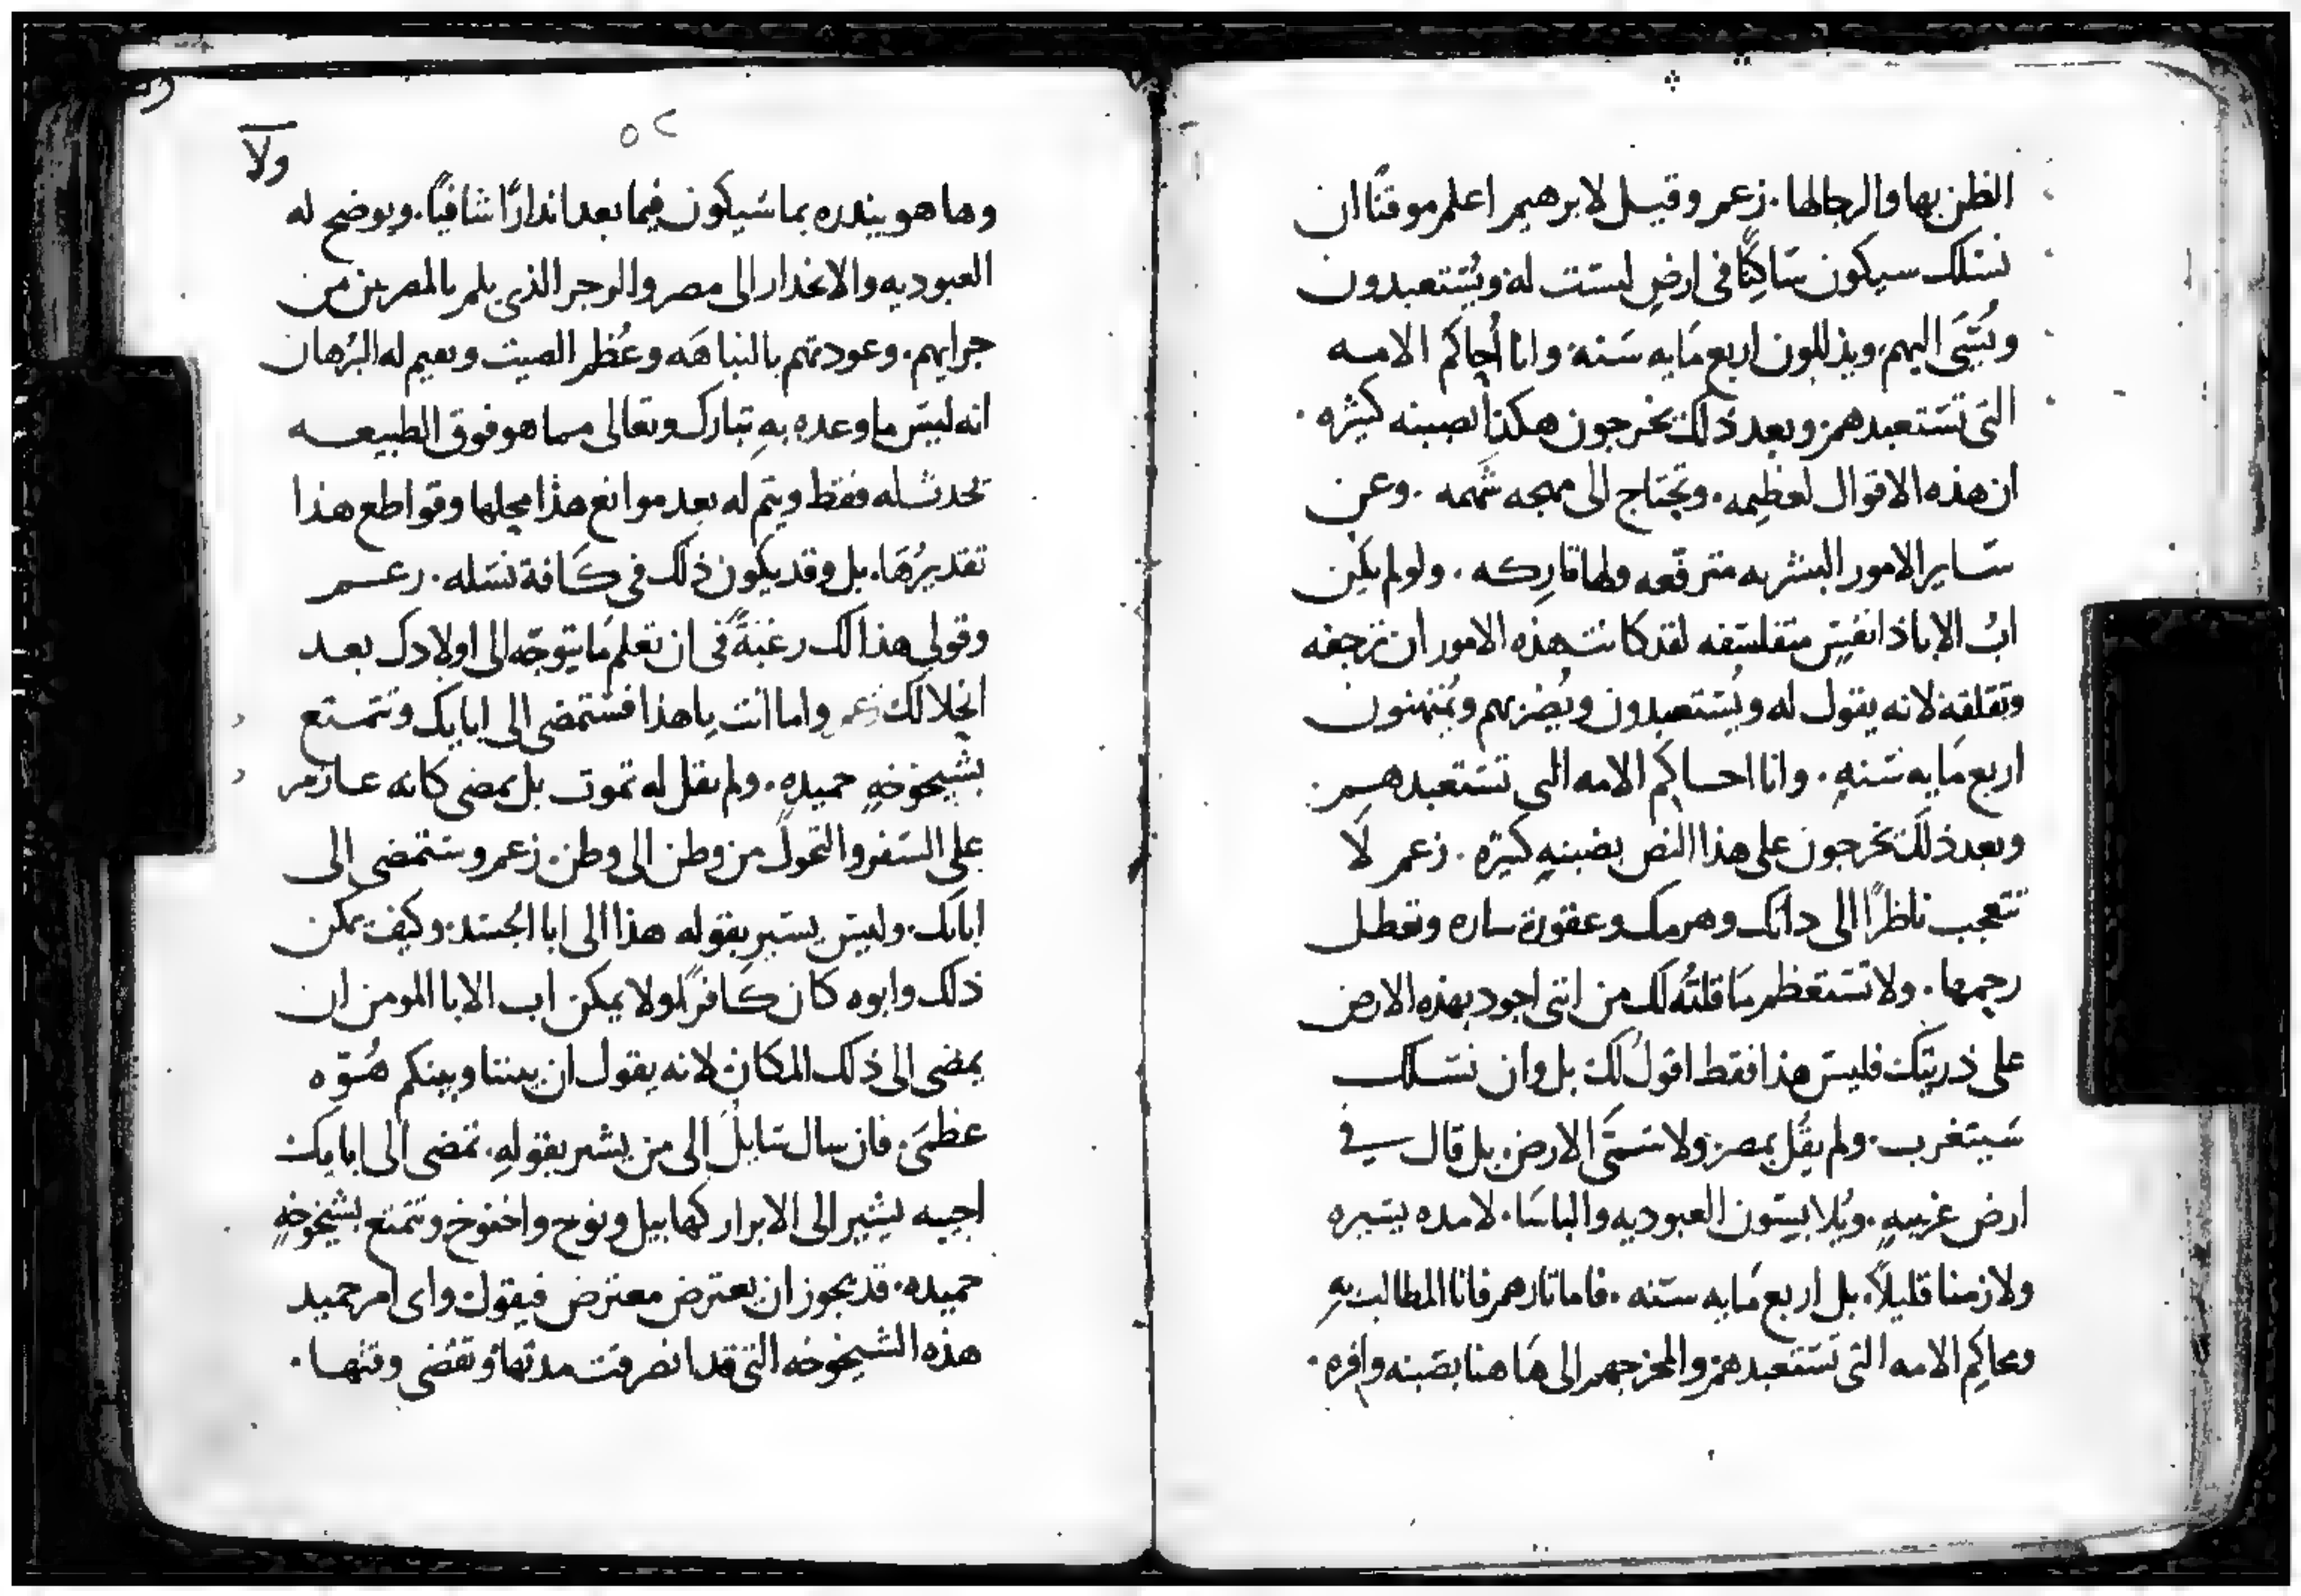 الظن بها والرجا لها . زعم وقيل لابرهيم اعلم موقنًا ان
نسلك سيكون ساكِنًا في ارضٍ ليست له ويُستعبدون
ويُسَّى اليهم ويذللون اربع مَايه سَنه وانا أُحاكم الامه
التى تستعبدهم وبعد ذلك يخرجون هكذا بصبنه كثيره .
ان هذه الاقوال لعظيمه . وتحتاج الى مهجه شَهمه . وعن
ساير الامور البشريه مترفّعه ولها تارِكه . ولو لم يكن
ابُ الابا ذا نفسٍ متفلسفه لقد كانت هذه الامور ان تزجفه
وتقلقه لانه يقول له ويُستعبدون ويُضر بهم ويُمتهنون
اربع مَايه سَنهٍ . وانا احاكم الامه التي تستعبدهم .
وبعد ذلك يخرجون على هذا النص بضبنهٍ كثيره . زعم لا
تتعجب ناظرًا الى ذاتك وهرمك وعقورة ساره وتعطل
رحمها . ولا تستعظم مَا قلتُه لك من انني اجود بهذه الارض
على ذريتك فليس هذا فقط اقول لك بل وان نسلك
سَيتغرب . ولم يقُل بمصر ولا سَمَّى الارض بل قال في
ارض غريبهٍ . ويُلابسون العبوديه والباسَا . لا مده يسيره
ولا زمنا قليلاً بل اربع مَايه سَنه . فاما ثارهم فانا المطالب بهِ
ومحاكِم الامه التى تستعبدهم والمخرجهم الى هَاهنا بصبنه وافره .
٥٢
ولا
وها هو ينذره بما سَيكون فيما بعد انذارًا شافيًا . ويوضح له
العبوديه والانحدار الى مصر والرجز الذي يلم بالمصريين من
جرايهم . وعودتهم بالنباهَه وعُظم الصيت ويقيم له البُرهان
انه ليس ما وعده بهِ تبارك وتعالى مما هو فوق الطبيعه
تحدث له فقط ويتم له بعد موانع هذا مَحِلها وقواطع هذا
تقديرُهَا . بل وقد يكون ذلك في كَافة نسَله . زعم
وقولي هذا لك رغبةً في ان تعلم مَا يتوجّه الى اولادك بعد
انحلالك زعم واما انت يا هذا فستمضى الى ابايك وتتمتع
بشيخوخهٍ حميدهٍ . ولم يقل له تموت بل يمضى كانه عازم
على السَفر والتحول من وطن الى وطن . زعم وستمضى الى
اباىك . وليس يشير بقوله هذا الى ابا الجسَد . وكيف يمكن
ذلك وابوه كان كَافرًا ولا يمكن اب الابا المومن ان
يمضى الى ذلك المكان لانه يقول ان بيننا وبينكم هُوّه
عظمَى . فان سال سَايلٌ الى من يشير بقولهِ . تمضى الى ابايك
اجيبه يشير الى الابرار كهابيل ونوح واخنوخ وتتمتع بشيخوخهٍ
حميده . قد يجوز ان يعترض معترض فيقول واى امر حميد
هذه الشيخوخه التى قد انصرفت مدتها وتقضى وقتها .